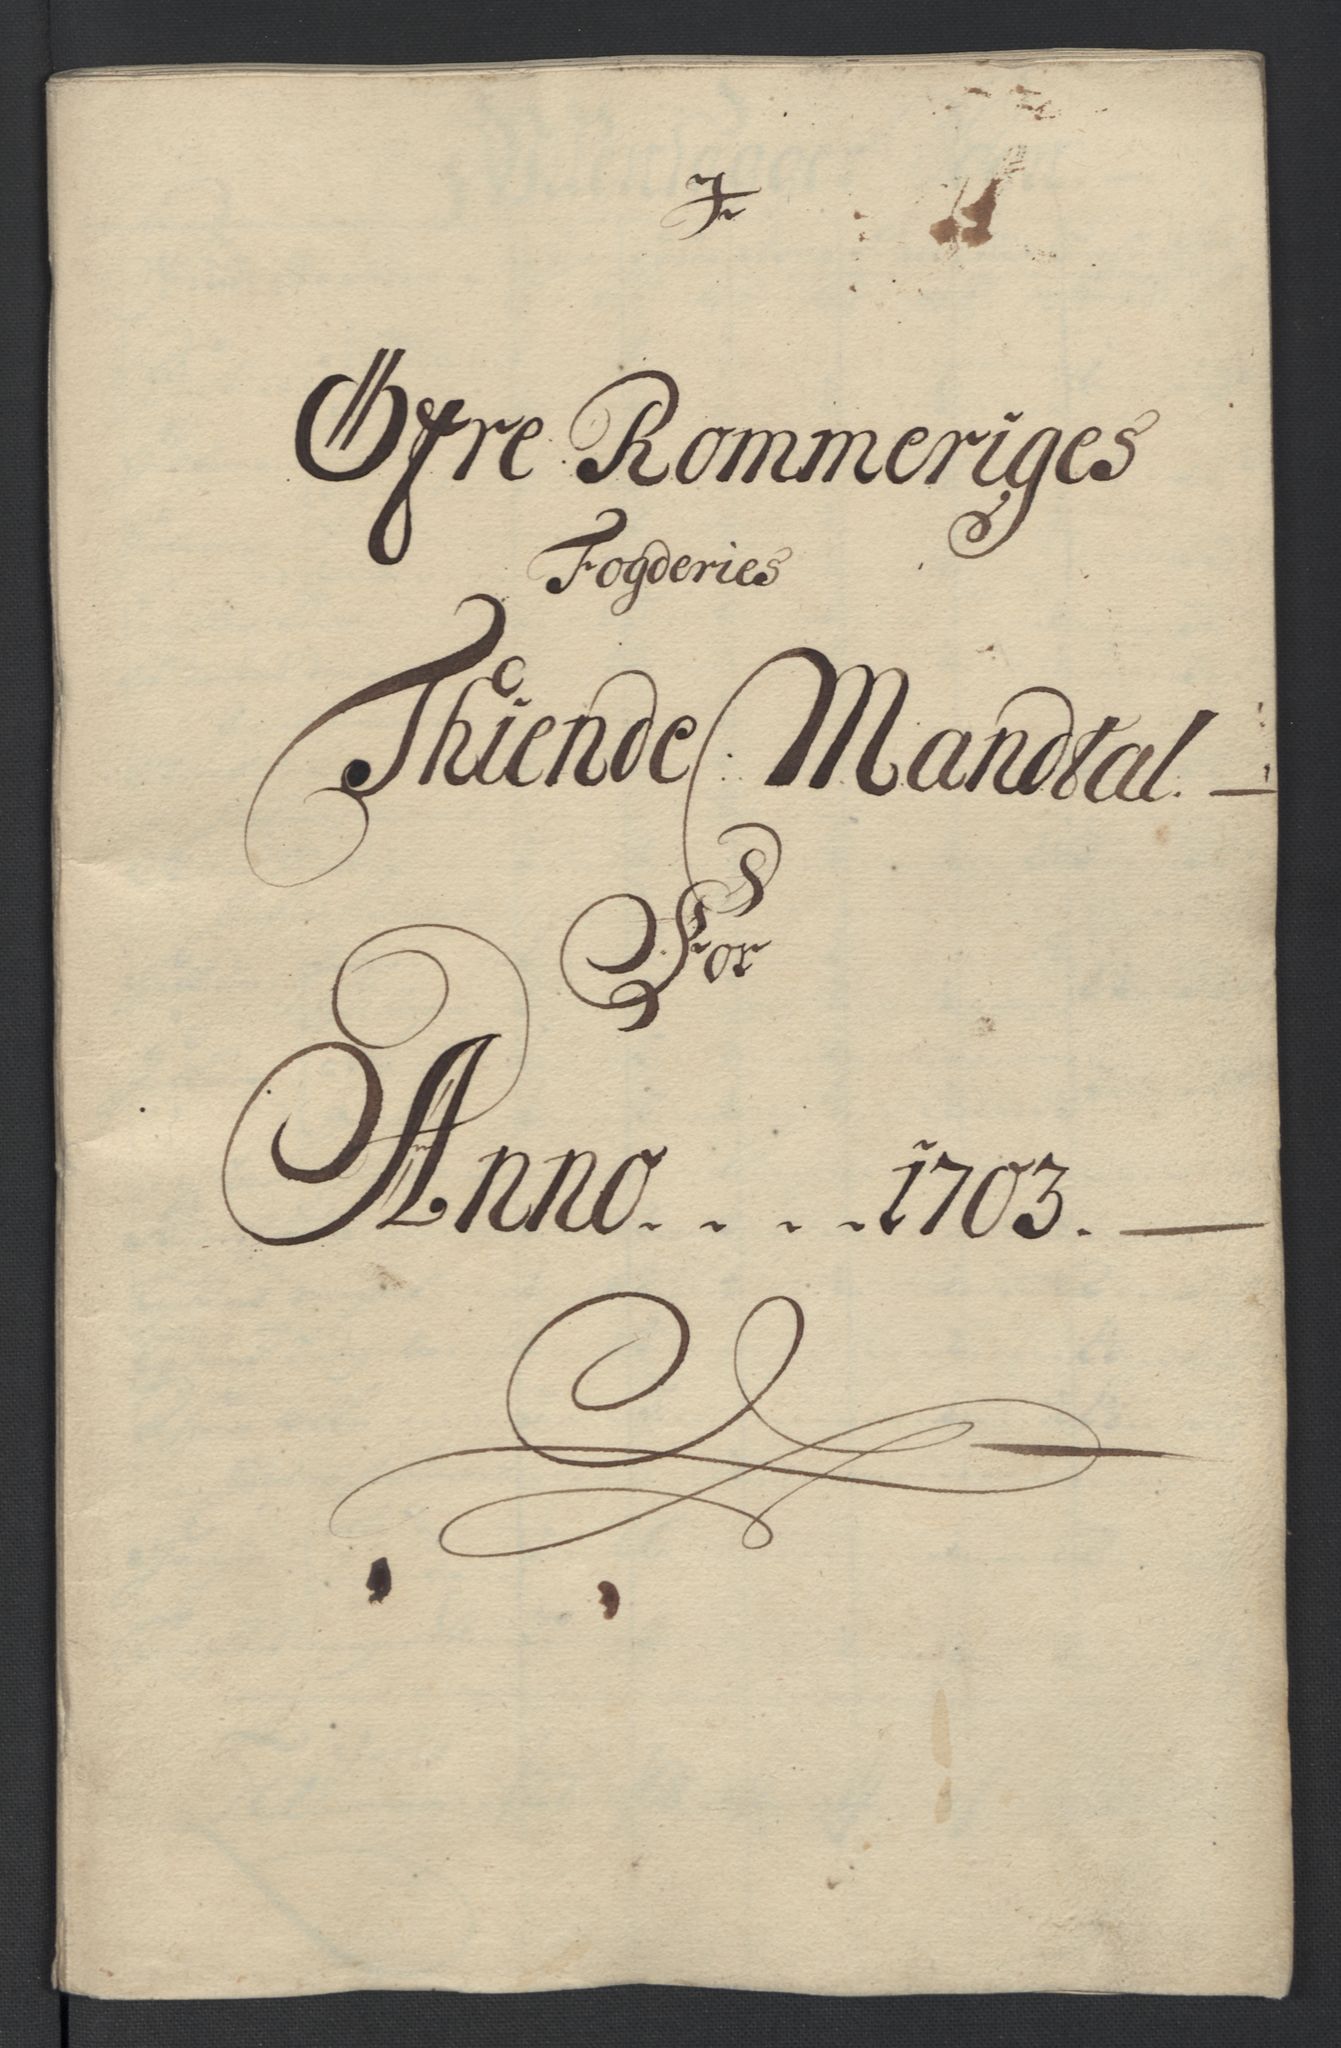 Øfre Rommeriges
Fogderies
Thiende Mandtal.
For
Anno . . . . 1703.